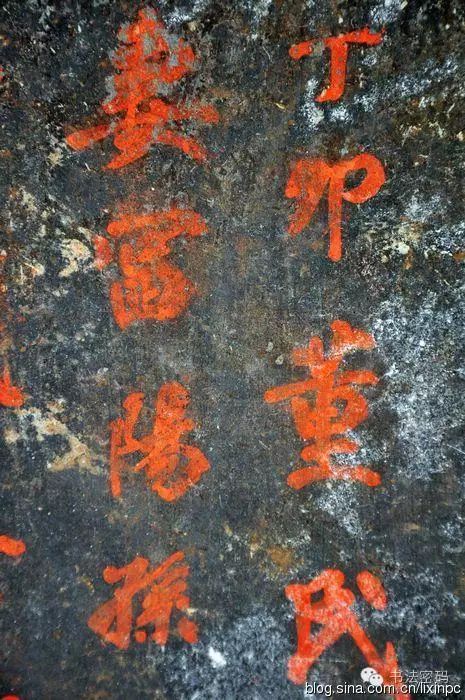 丁卯董民
富陽孫
书法密码
blog.sina.com.cn/lixinpc